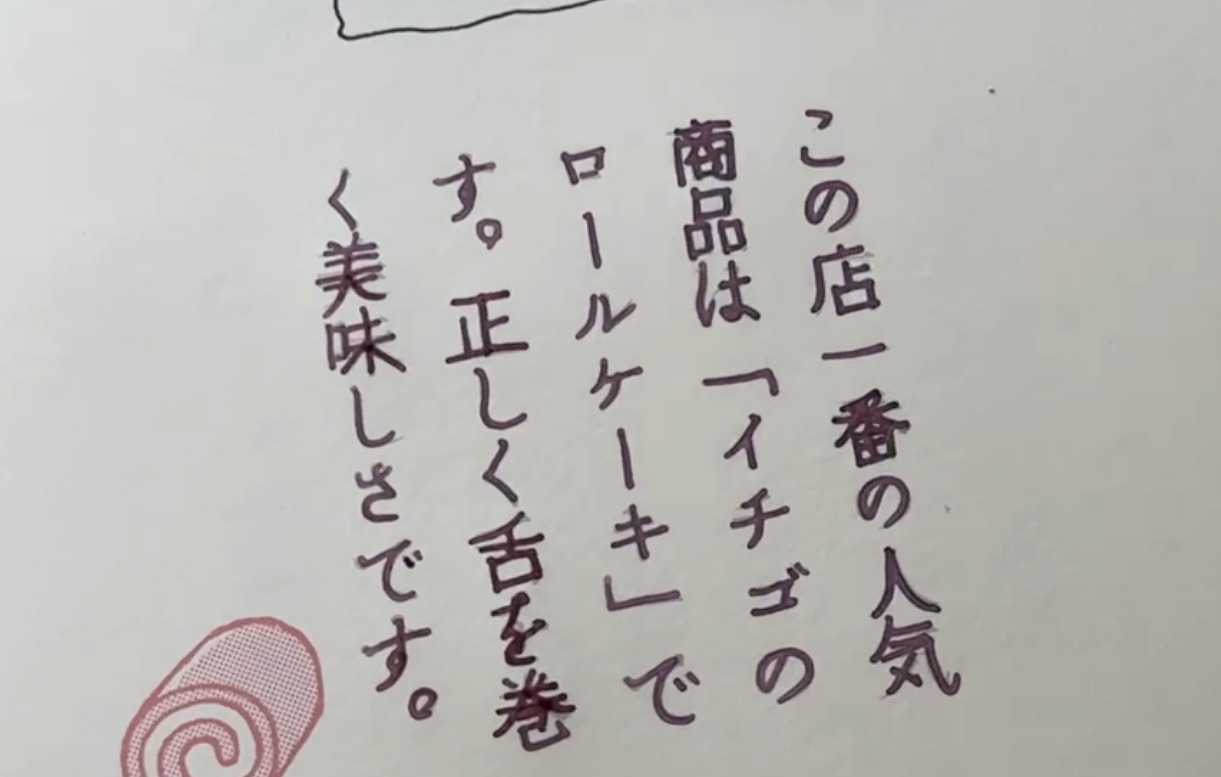 この店一番の人気
商品は「イチゴの
ロールケーキ」で
す。正しく舌を巻
く美味しさです。